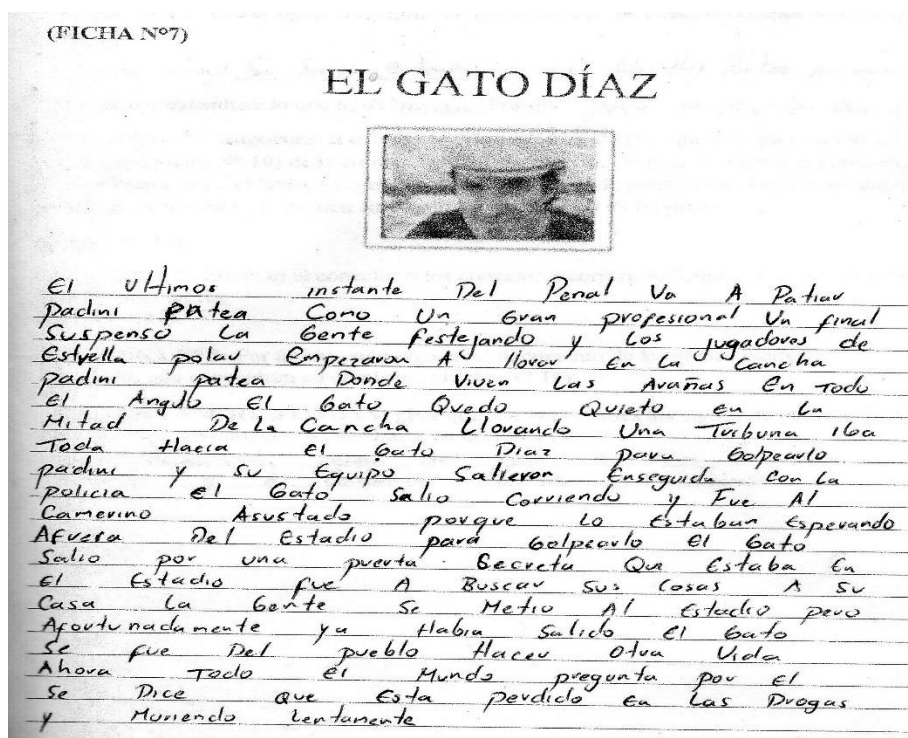 (FICHA Nº7)
EL GATO DÍAZ
El Ultimos instante Del Penal Va A Patiar
padini patea Como Un Gran profesional Un final
Suspenso La Gente festejando y Los jugadores de
Estrella polar Empezaron A llorar En La Cancha
padini patea Donde Viven Las Arañas En Todo
El Angulo El Gato Quedo Quieto en La
Mitad De La Cancha Llorando Una Tribuna iba
Toda Hacia el Gato Diaz para Golpearlo
padini y su Equipo Salieron Enseguida Con La
policia el Gato Salio Corriendo y Fue Al
Camerino Asustado porque Lo Estaban Esperando
Afuera Del Estadio para Golpearlo El Gato
Salio por una puerta Secreta Que Estaba En
El Estadio fue A Buscar Sus Cosas A Su
Casa La Gente Se Metio Al Estadio pero
Afortunadamente ya Habia Salido El Gato
Se fue Del pueblo Hacer Otra Vida
Ahora Todo el Mundo pregunta por El
Se Dice que Esta perdido En Las Drogas
y Muriendo Lentamente